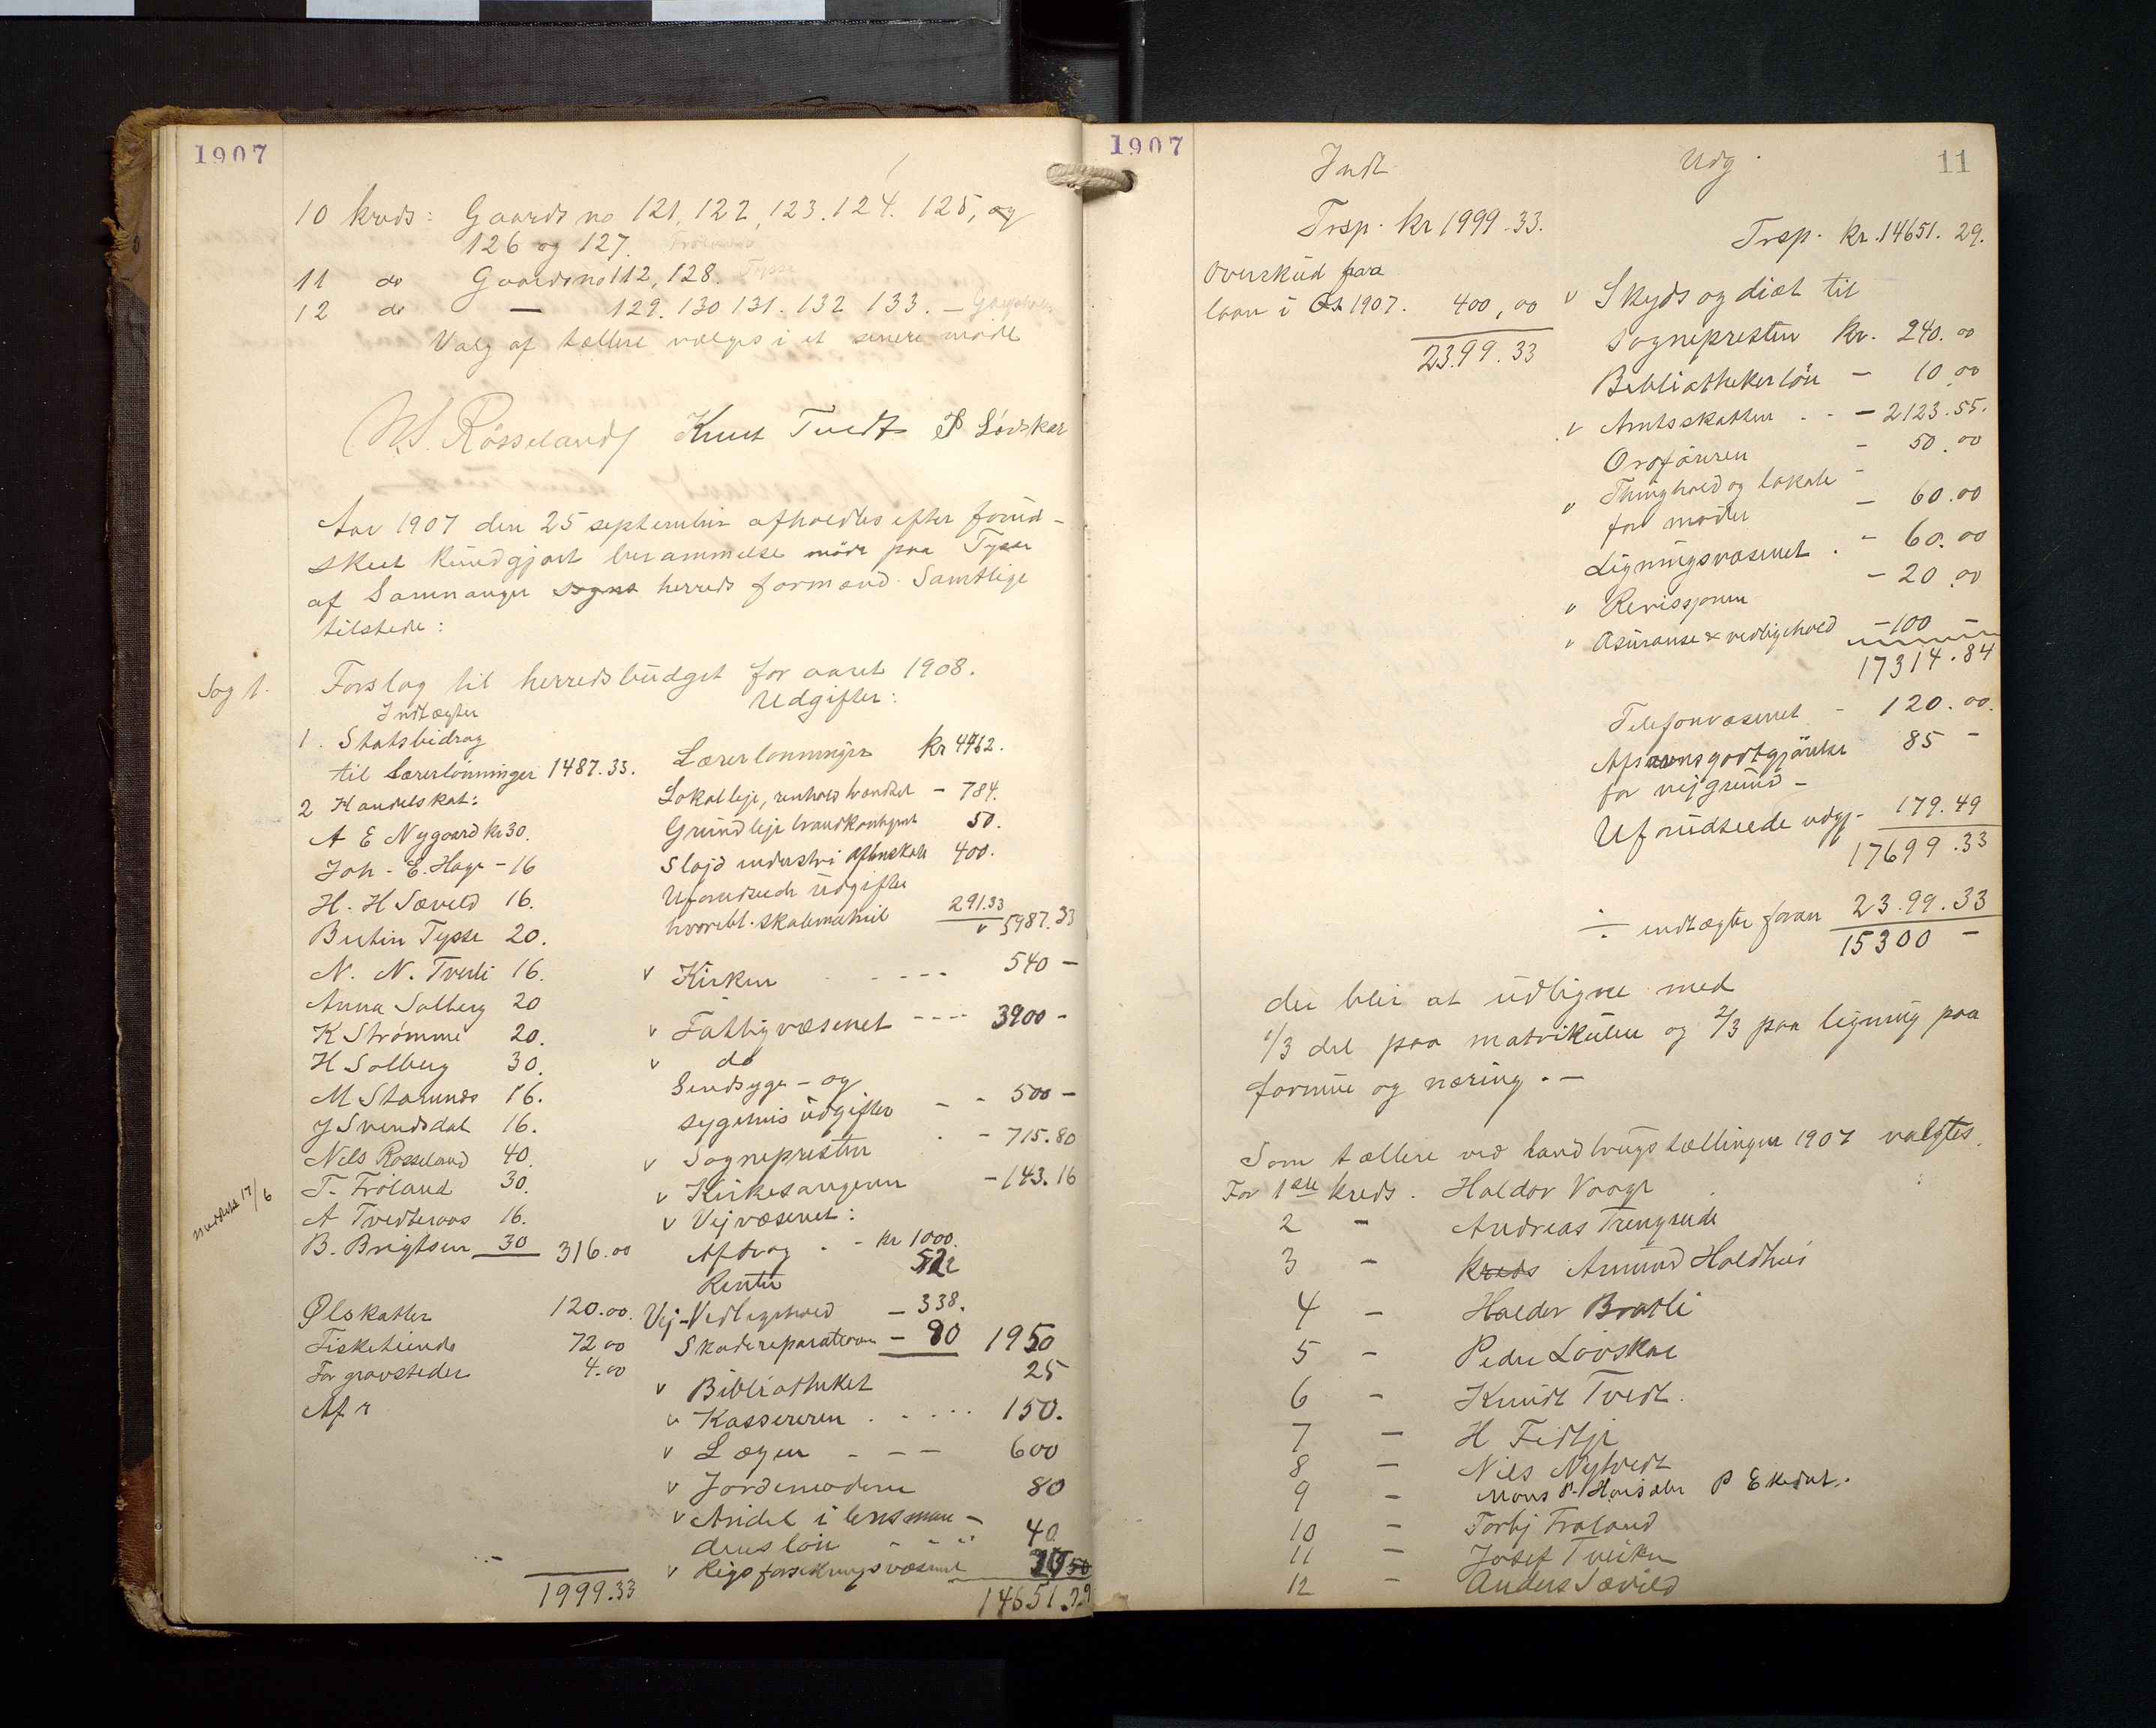 1907
10 kreds: Gaards no 121, 122, 123. 124. 125, og
126 og 127.
11 do Gaardsno 112, 128.
12 do — 129. 130 131. 132 133. —
Valg af tællere vælges i et senere møde
N.S. Røsseland Knut Tvedt P Lövskar
Aar 1907 den 25 september afholdtes efter forud-
skeet kundgjort berammelse møde paa Tysse
af Samnanger sogns herreds formænd. Samtlige
tilstede:
Sag 1. Forslag til herredsbudget for aaret 1908.
Indtægter
1. Statsbidrag
til Lærerlønninger 1487.33.
2 Handelskat:
A E Nygaard kr 30.
Joh. E. Hage - 16
H. H Sæveld 16.
Bertin Tysse 20.
N. N. Tveli 16.
Anna Solberg 20
K Strømme 20.
H Solberg 30.
M Starunds 16.
J Svendsdal 16.
Nils Rosseland 40.
T. Fröland 30.
A Tvedteraas 16.
meddelt 17/6
B. Brigtsen 30 316.00
Ølskatten 120.00
Fisketiende 72 00
For gravsteder 4.00
Af r
1999.33
Udgifter:
Lærerlønninger kr 4462.
Lokalleje, renhold brændsel - 784.
Grundleje 50.
Sløjd industri Aftenskole 400.
Uforudseede Udgifter
hvoribl. skolemateriel 291.33
v 5987.33
v Kirken - - - - 540 -
v Fattigvæsenet - - - - 3900 -
v do
Sindsyge - og
sygehus udgifter - - 500 -
v Sognepresten - - 715.80
v Kirkesangeren - 143.16
v Vejvæsenet:
Afdrag - - kr 1000.
Renter 522
Vej-Vedligehold - 338.
Skadereparationer - 90 1950
v Bibliotheket 25
v Kassereren . . . . . 150.
v Lægen - - - 600
v Jordemoderen 80
v Andel i lensman -
dens løn 40
v Rigsforsikringsvæsenet 20 50
14651.29
1907
11
Indt
Trsp. kr 1999.33.
Overskud paa
laan i 1907. 400,00
2399.33
Udg.
Trsp. kr. 14651.29.
v Skyds og diæt til
Sognepresten kr. 240.00
Bibliothekerløn - 10.00
v Amtsskatten . . - 2123.55.
Ordføreren - 50.00
v Thinghold og lokale -
for møder - 60.00
Ligningsvæsenet . - 60.00
v Revissjonen - 20.00
v Asuranse & vedligehold - 100 -
17314.84
Telefonvæsenet - 120.00.
Afsavnsgodtgjørelse 85 -
for vejgrund -
Uforudseede udg. - 179.49
17699.33
÷ indtægter foran 2399.33
15300 -
der blir at udligne med
1/3 del paa matrikulen og 2/3 paa ligning paa
formue og næring. -
Som tællere ved landbrugstællingen 1907 valgtes.
For 1ste kreds. Haldor Vaage
2 - Andreas Trengreide
3 - kreds Amund Holdhus
4 - Haldor Bratli
5 - Peder Lövskar
6 - Knudt Tvedt.
7 - H Fidtje
8 - Nils Nytvedt
9 - Mons P. Haisdal P Ekedal.
10 - Torbj Fröland
11 - Josef Tveiten
12 - Anders Sæveld